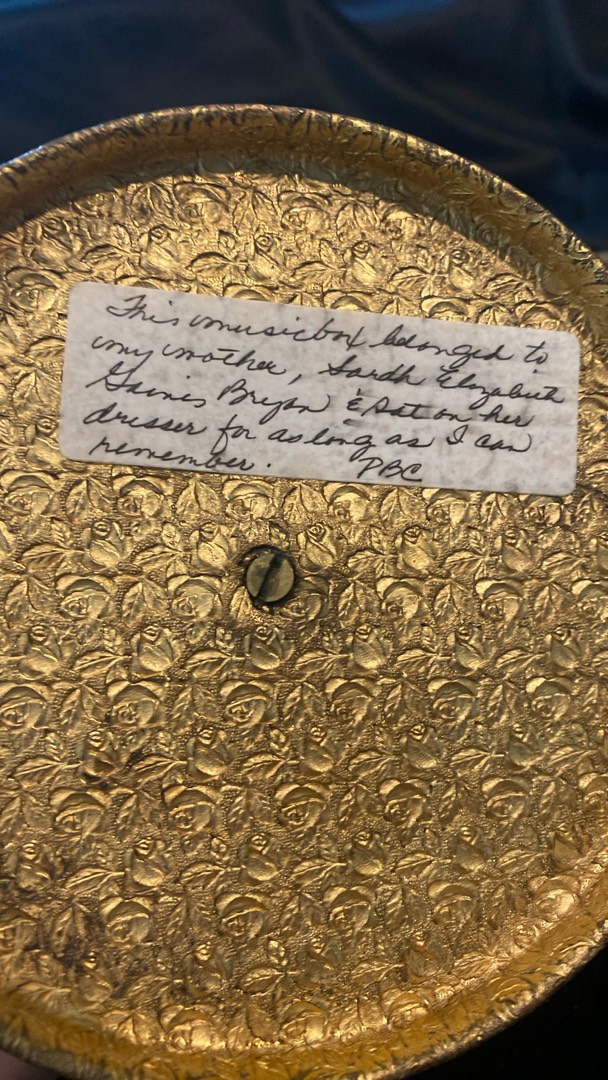 This musicbox belonged to
my mother, Sarah Elizabeth
Gaines Bryan & sat on her
dresser for as long as I can
remember. PBC